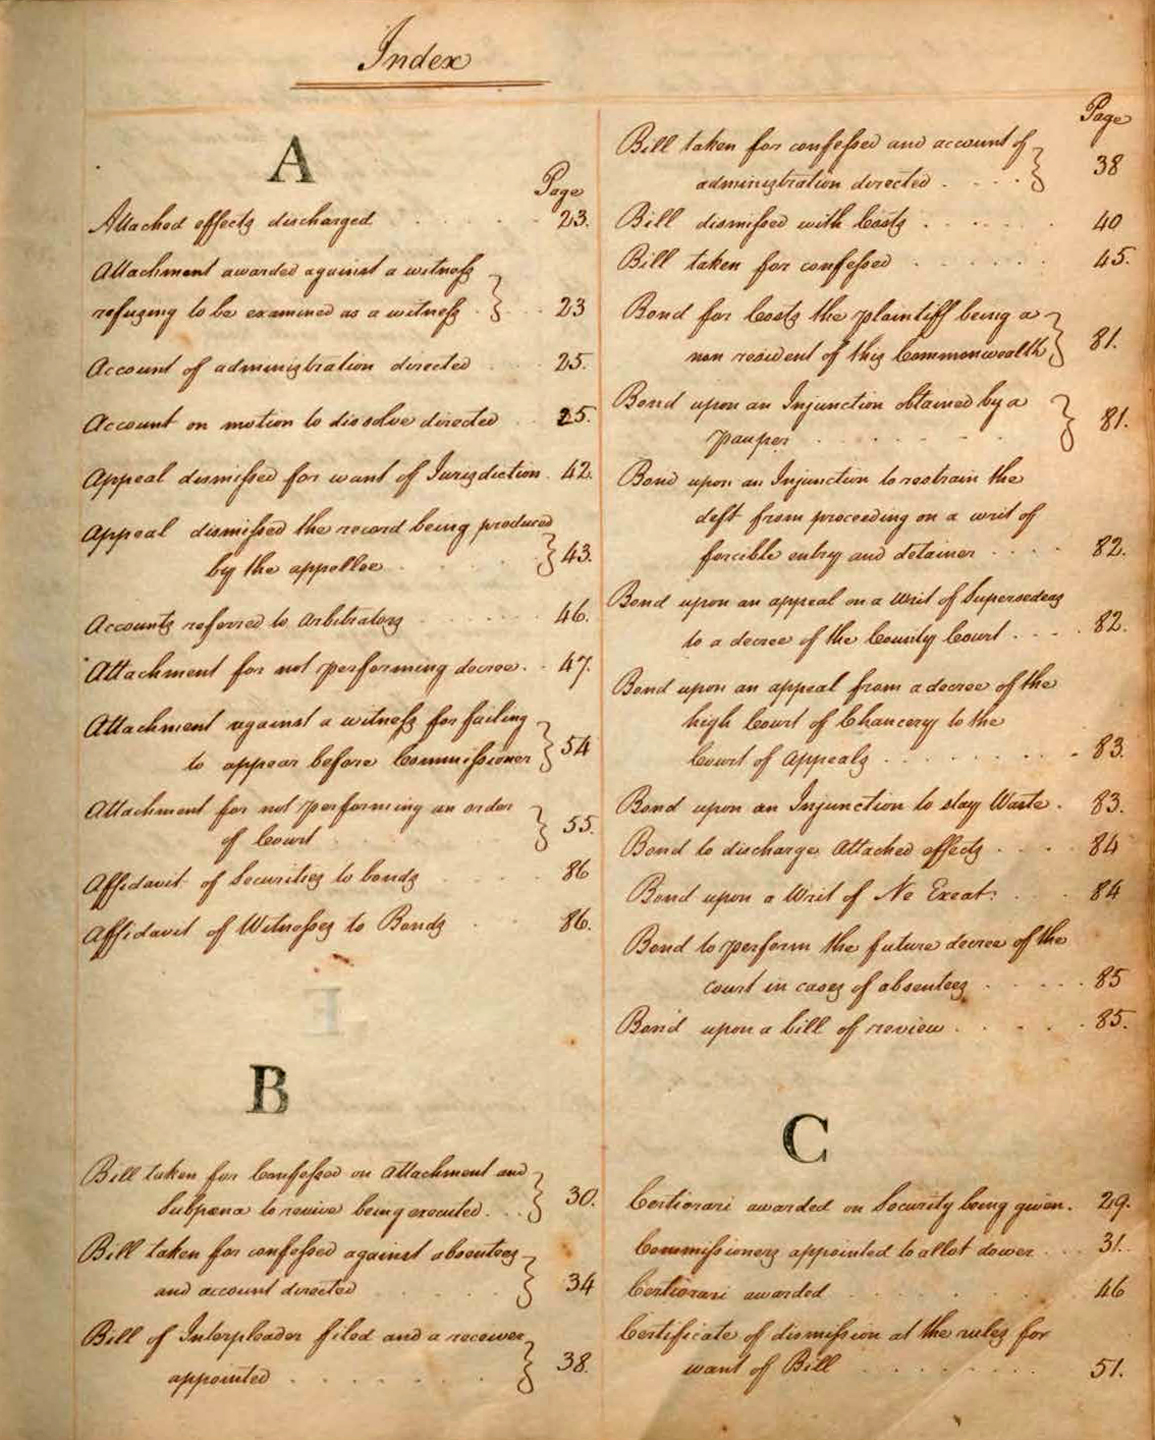 Index
A
Page
Attached effects discharged . . . . . . 23.
Attachment awarded against a witness
refusing to be examined as a witness } . . . 23
Account of administration directed . . . 25.
Account on motion to dissolve directed . . 25.
Appeal dismissed for want of Jurisdiction . 42.
Appeal dismissed the record being produced
by the appellee . . . . } 43.
Accounts referred to Arbitrators . . . . . . 46.
Attachment for not performing decree . . 47.
Attachment against a witness for failing
to appear before Commissioner } 54
Attachment for not performing an order
of Court . . . . . } 55.
Affidavit of Securities to bonds . . . . 86
Affidavit of Witnesses to Bonds . . 86.
B
Bill taken for Confessed on Attachment and
Subpœna to revive being executed . . . } 30.
Bill taken for confessed against absentees
and account directed . . . . . } 34
Bill of Interpleader filed and a receiver
appointed . . . . . . } 38.
Page
Bill taken for confessed and account of
administration directed . . . . } 38
Bill dismissed with Costs . . . . . 40
Bill taken for confessed . . . . . . 45.
Bond for Costs the plaintiff being a
non resident of this Commonwealth } 81.
Bond upon an Injunction obtained by a
pauper . . . . . . } 81.
Bond upon an Injunction to restrain the
deft from proceeding on a writ of
forcible entry and detainer . . . . 82.
Bond upon an appeal on a Writ of Supersedeas
to a decree of the County Court . . . . 82.
Bond upon an appeal from a decree of the
high Court of Chancery to the
Court of Appeals . . . . . . . . 83.
Bond upon an Injunction to stay Waste . 83.
Bond to discharge Attached effects . . . . 84
Bond upon a Writ of Ne Exeat . . . 84
Bond to perform the future decree of the
court in cases of absentees . . . . . 85
Bond upon a bill of review . . . . . 85.
C
Certiorari awarded on Security being given . 29.
Commissioners appointed to allot dower . . . 31.
Certiorari awarded . . . . . . . 46
Certificate of dismission at the rules for
want of Bill . . . . . . . 51.